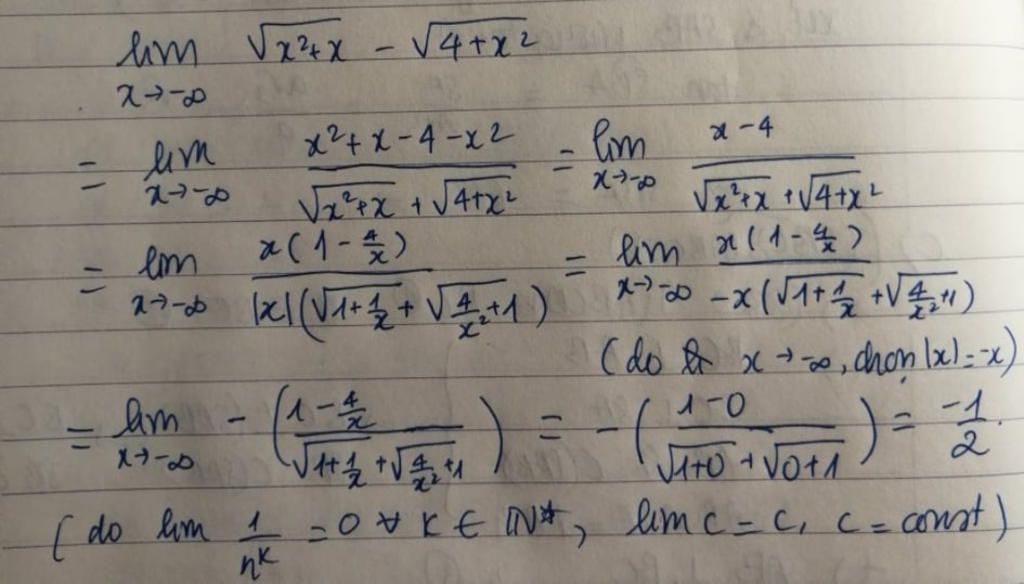 lim x→-∞ √(x²+x) - √(4+x²)
= lim x→-∞ (x²+x-4-x²)/(√(x²+x) + √(4+x²)) = lim x→-∞ (x-4)/(√(x²+x) + √(4+x²))
= lim x→-∞ x(1-4/x)/(|x|(√(1+1/x) + √(4/x²+1))) = lim x→-∞ x(1-4/x)/(-x(√(1+1/x) + √(4/x²+1)))
(do x→-∞, chọn |x|=-x)
= lim x→-∞ -((1-4/x)/(√(1+1/x) + √(4/x²+1))) = -((1-0)/(√(1+0) + √(0+1))) = -1/2.
(do lim 1/n^k = 0 ∀ k ∈ ℕ*, lim c = c, c = const)